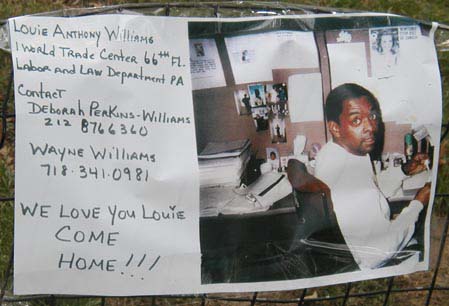 Louie Anthony Williams
1 World Trade Center 66th FL.
Labor and Law Department PA
Contact
Deborah Perkins-Williams
212 8766360
Wayne Williams
718.341.0981
We Love You Louie
Come
Home!!!